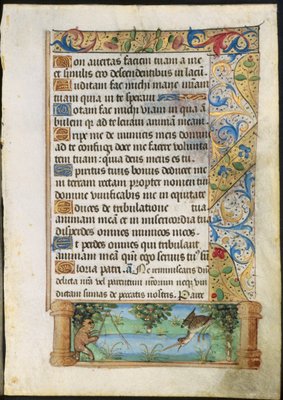 Non avertas faciem tuam a me
et similis ero descendentibus in lacū.
Auditam fac michi mane miām
tuam quia in te speravi
Notam fac michi viam in qua ā
bulem q̄ ad te levavi animam meam.
Eripe me de inimicis meis domine
ad te confugi doce me facere volunta
tem tuam : quia deus meus es tu.
Spiritus tuus bonus deducet me
in terram rectam propter nomen tuū
domine vivificabis me in equitate
Educes de tribulatione tua
animam meā et in misericordia tua
disperdes omnes inimicos meos.
Et perdes omnes qui tribulant
animam meā qm̄ ego servus tuus sū
Gloria patri. A. Ne reminiscaris dn̄e
delicta nr̄a vel parentum nr̄orum neque vin
dictam sumas de peccatis nostris. Pater